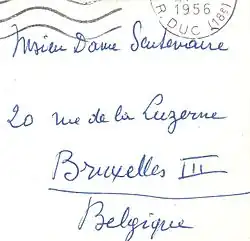 1956
R. DUC (18e)
Msieu Dame Scutenaire
20 rue de la Luzerne
Bruxelles III
Belgique